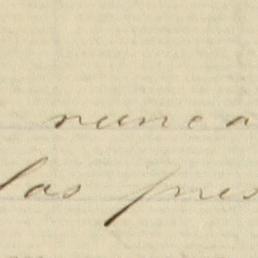 nunca
las pres